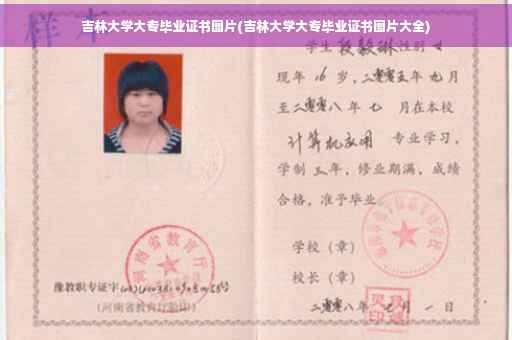 吉林大学大专毕业证书图片(吉林大学大专毕业证书图片大全)
样本
学生段毅琳性别 女
现年 16 岁,二零零五年 九月
至二零零八年 七 月在本校
计算机应用 专业学习,
学制 三 年,修业期满,成绩
合格,准予毕业
学校(章)
校长(章)
二零零八年 七 月 一 日
河南省教育厅
豫教职专证字
(河南省教育厅验印)